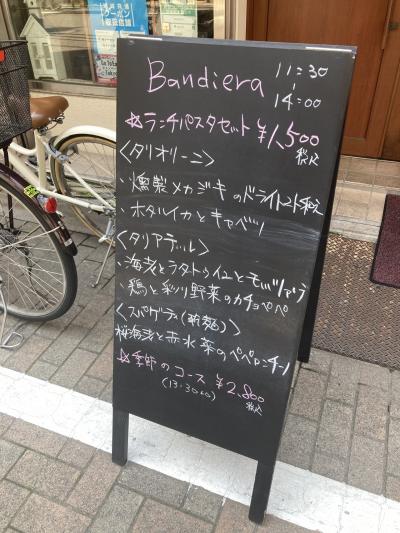 Bandiera
11:30
14:00
☆ランチパスタセット ¥1,500
税込
〈タリオリーニ〉
・燻製メカジキのドライトマト和え
・ホタルイカとキャベツ
〈タリアテッレ〉
・海老とラタトゥイユとモッツァレラ
・鶏と彩り野菜のカチョペペ
〈スパゲティ(乾麺)〉
桜海老と赤水菜のペペロンチーノ
☆季節のコース ¥2,800
税込